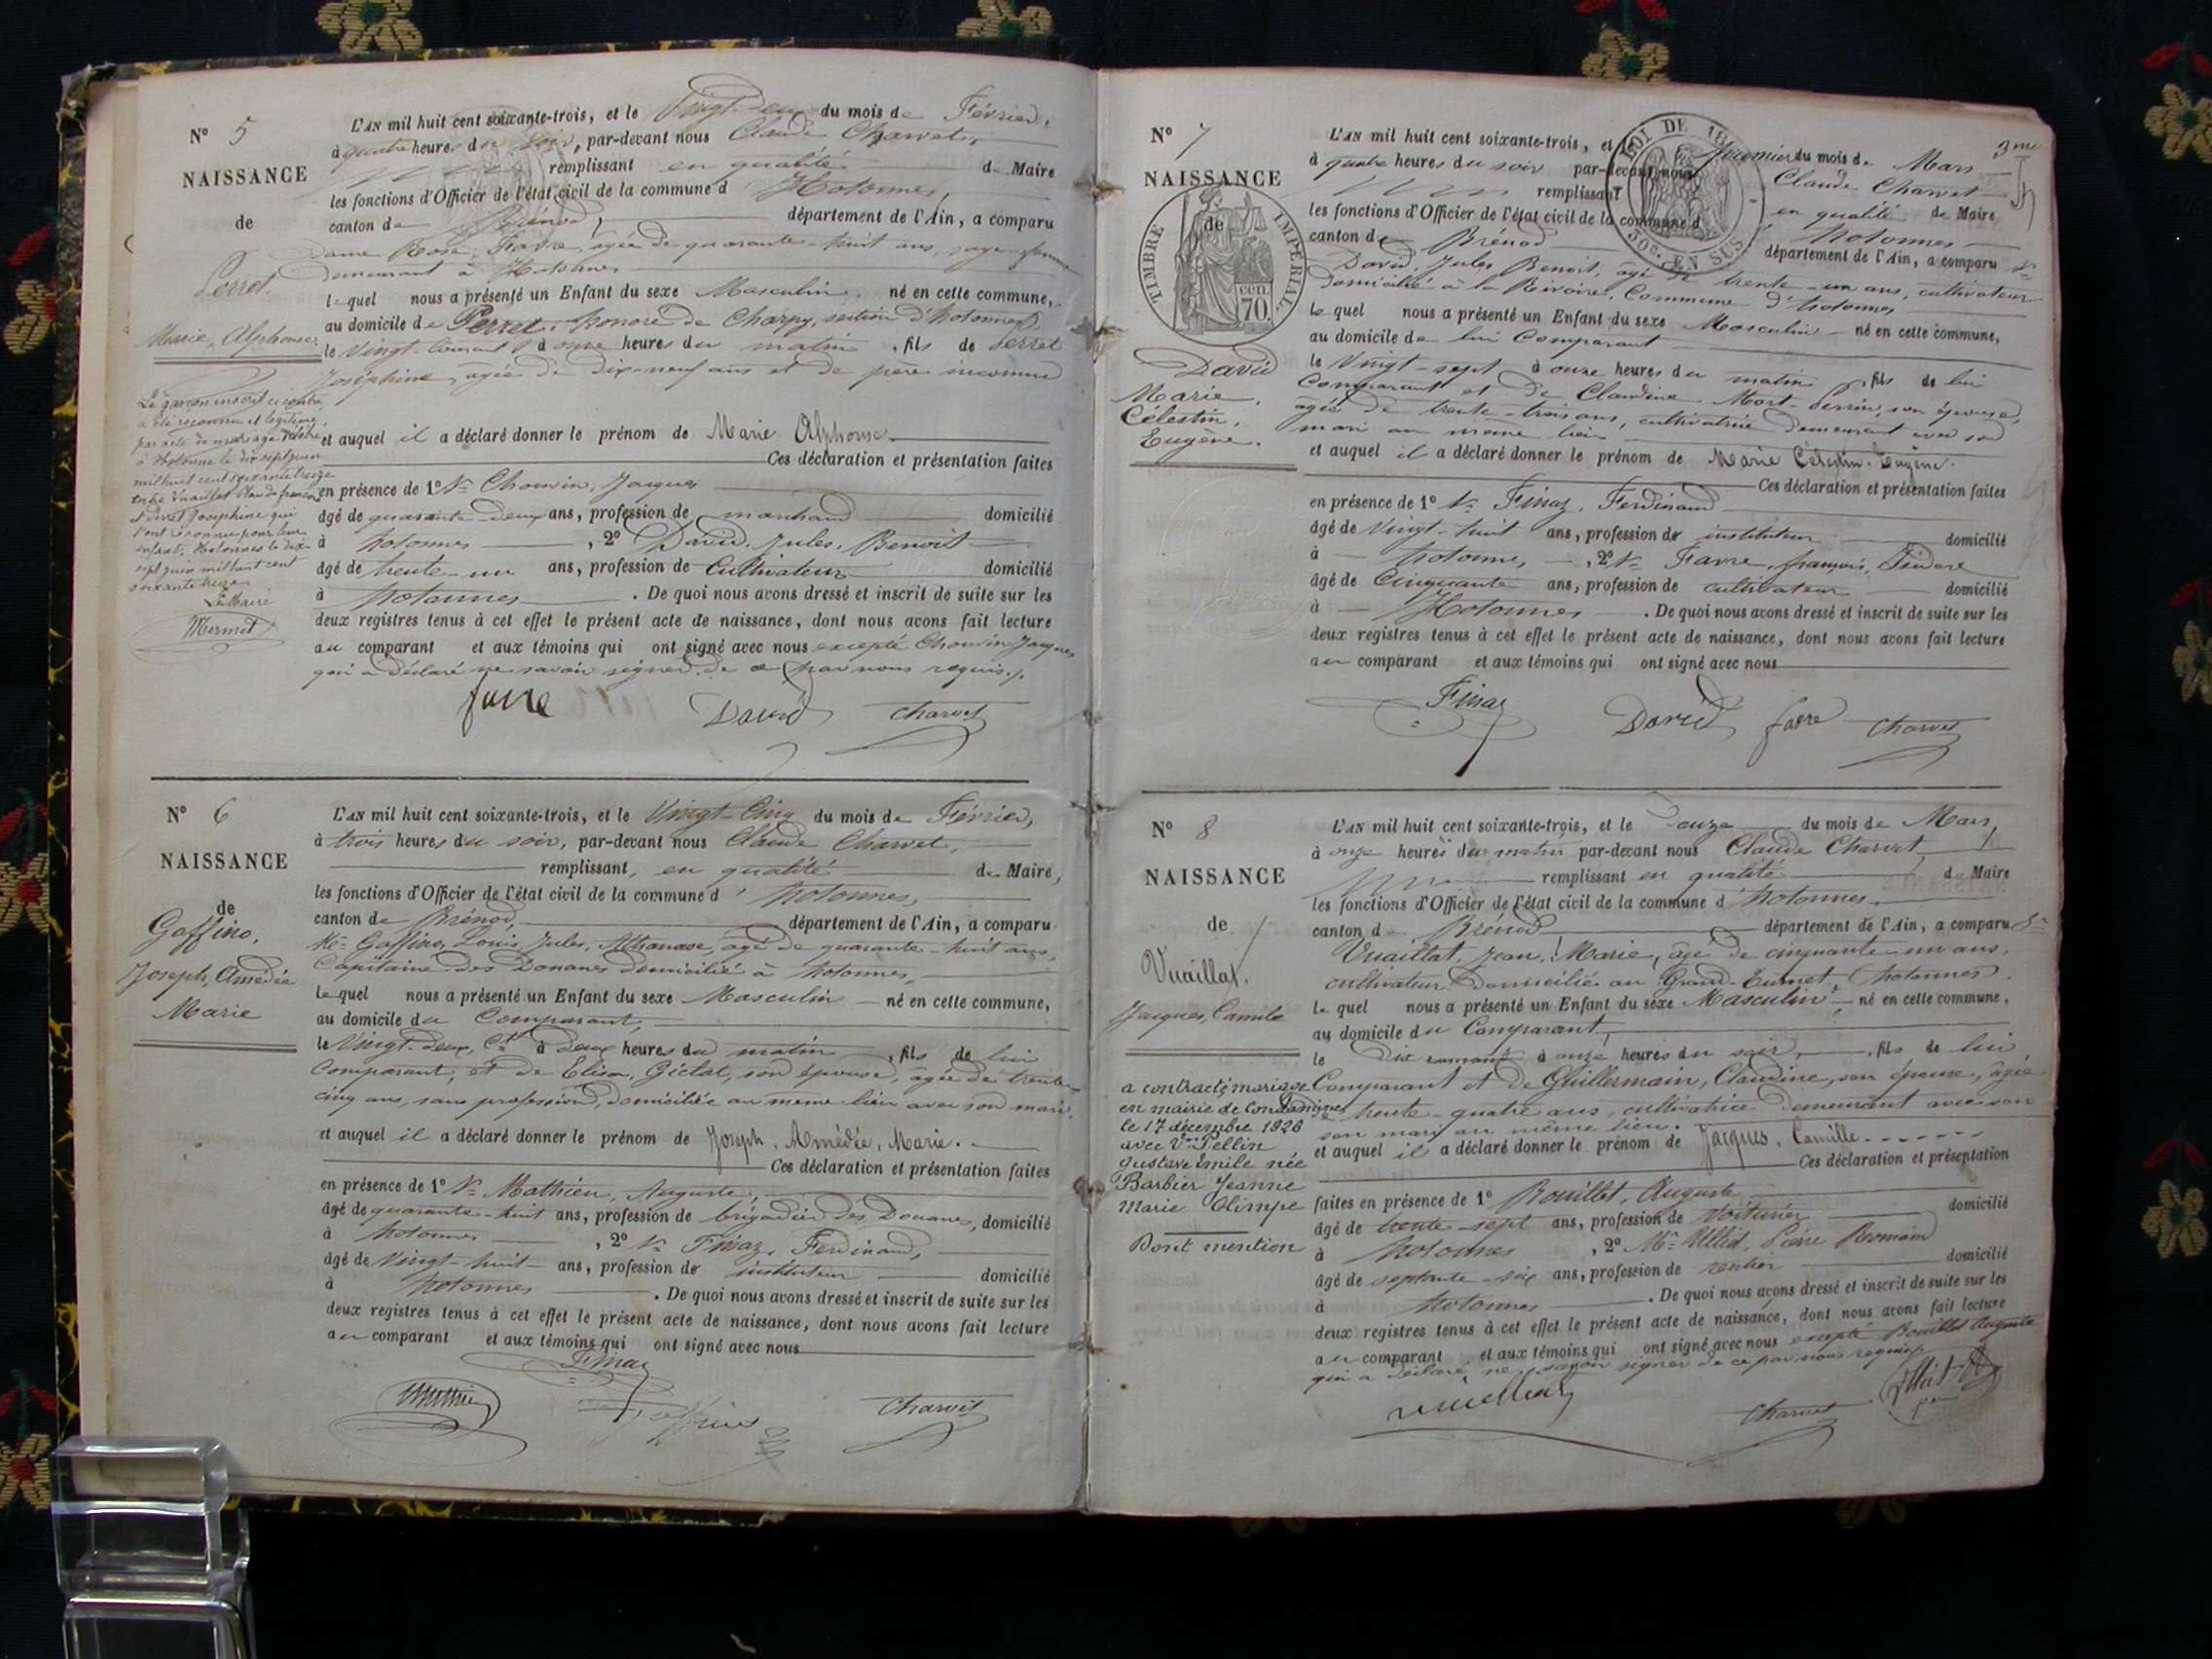 N° 5
NAISSANCE
de
Perret
Marie, Alphonse
Le garçon inscrit ci contre,
a été reconnu et légitimé,
par acte de mariage célébré
à Hotonne le dix sept juin
mil huit cent soixante treize
entre Vuaillat Claude françois
et Perret Joséphine qui
l'ont reconnu pour leur
enfant. Hotonnes le dix
sept juin mil huit cent
soixante treize
Le Maire
Mermet
L'AN mil huit cent soixante-trois, et le Vingt-deux du mois de Février,
à quatre heures du soir, par-devant nous Claude Charvet,
remplissant en qualité de Maire
les fonctions d'Officier de l'état civil de la commune d Hotonnes,
canton de Brénod, département de l'Ain, a comparu
Dame Rose, Favre, agée de quarante-huit ans, sage-femme
demeurant à Hotonnes
lequel nous a présenté un Enfant du sexe Masculin, né en cette commune,
au domicile de Perret, honoré de Charpy, section d'hotonnes,
le Vingt-courant à onze heures du matin, fils de Perret
Joséphine, agée de dix-neuf ans et de père inconnu
et auquel il a déclaré donner le prénom de Marie Alphonse.
Ces déclaration et présentation faites
en présence de 1° Sr Chouvin, Jacques
âgé de quarante-deux ans, profession de marchand domicilié
à hotonnes, 2° David, Jules, Benoit
âgé de trente-un ans, profession de Cultivateur domicilié
à hotonnes. De quoi nous avons dressé et inscrit de suite sur les
deux registres tenus à cet effet le présent acte de naissance, dont nous avons fait lecture
au comparant et aux témoins qui ont signé avec nous excepté Chouvin Jacques
qui a déclaré ne savoir signer de ce par nous requis.
favre David Charvet
N° 6
NAISSANCE
de
Gaffino,
Joseph, Amédée
Marie
L'AN mil huit cent soixante-trois, et le Vingt-Cinq du mois de Février,
à trois heures du soir, par-devant nous Claude Charvet,
remplissant, en qualité de Maire,
les fonctions d'Officier de l'état civil de la commune d' hotonnes,
canton de Brénod, département de l'Ain, a comparu
Mr Gaffino, Louis, Jules, Athanase, agé de quarante-huit ans,
Capitaine des Douanes domicilié à hotonnes,
lequel nous a présenté un Enfant du sexe Masculin né en cette commune,
au domicile du Comparant,
le Vingt-deux, Ct à deux heures du matin, fils de lui
Comparant, et de Elisa, Giélat, son épouse, agée de trente-
cinq ans, sans profession, domiciliée au même lieu avec son mari.
et auquel il a déclaré donner le prénom de Joseph, Amédée, Marie.
Ces déclaration et présentation faites
en présence de 1° Sr Mathieu, Auguste,
âgé de quarante-huit ans, profession de brigadier des Douanes, domicilié
à hotonnes, 2° Sr Finaz, Ferdinand,
âgé de Vingt-huit ans, profession de instituteur domicilié
à hotonnes. De quoi nous avons dressé et inscrit de suite sur les
deux registres tenus à cet effet le présent acte de naissance, dont nous avons fait lecture
au comparant et aux témoins qui ont signé avec nous
Finaz
Mathieu Gaffino Charvet
3me
N° 7
NAISSANCE
de
TIMBRE IMPÉRIAL
70 cen
LOI DE 18
50c. EN SUS
David
Marie,
Célestin,
Eugène.
L'AN mil huit cent soixante-trois, et le premier du mois de Mars
à quatre heures du soir par-devant nous Claude Charvet
remplissant en qualité de Maire
les fonctions d'Officier de l'état civil de la commune d' hotonnes
canton de Brénod département de l'Ain, a comparu Sr
David, Jules, Benoit, âgé de trente-un ans, cultivateur
domicilié à la Rivoire, Commune d'hotonnes
lequel nous a présenté un Enfant du sexe Masculin né en cette commune,
au domicile de lui Comparant
le Vingt-sept à onze heures du matin, fils de lui
Comparant et de Claudine Mort-Perrin, son épouse,
agée de trente-trois ans, cultivatrice demeurant avec son
mari au même lieu
et auquel il a déclaré donner le prénom de Marie Célestin-Eugène.
Ces déclaration et présentation faites
en présence de 1° Sr Finaz, Ferdinand
âgé de Vingt-huit ans, profession de instituteur domicilié
à hotonnes, 2° Sr Favre, françois, Isidore
âgé de Cinquante ans, profession de cultivateur domicilié
à Hotonnes. De quoi nous avons dressé et inscrit de suite sur les
deux registres tenus à cet effet le présent acte de naissance, dont nous avons fait lecture
au comparant et aux témoins qui ont signé avec nous
Finaz David favre Charvet
N° 8
NAISSANCE
de
Vuaillat.
Jacques, Camille
a contracté mariage
en mairie de Condamine
le 17 décembre 1926
avec Vve Pellin
Gustave Emile née
Barbier Jeanne
Marie Olimpe
Dont mention
L'AN mil huit cent soixante-trois, et le onze du mois de Mars,
à onze heures du matin par-devant nous Claude Charvet,
remplissant en qualité de Maire
les fonctions d'Officier de l'état civil de la commune d'hotonnes,
canton de Brénod département de l'Ain, a comparu Sr
Vuaillat, Jean, Marie, âgé de cinquante-un ans,
cultivateur domicilié au Grand-Eurnet, (hotonnes).
lequel nous a présenté un Enfant du sexe Masculin, né en cette commune,
au domicile du Comparant,
le Dix courant à onze heures du soir, fils de lui
Comparant et de Guillermain, Claudine, son épouse, agée
de trente-quatre ans, cultivatrice demeurant avec son
son mari au même lieu.
et auquel il a déclaré donner le prénom de Jacques, Camille
Ces déclaration et présentation
faites en présence de 1° Bouillet, Auguste
âgé de trente-sept ans, profession de Voiturier domicilié
à hotonnes, 2° Mr Ulliet, Pierre Romain
âgé de septante-six ans, profession de rentier domicilié
à hotonnes. De quoi nous avons dressé et inscrit de suite sur les
deux registres tenus à cet effet le présent acte de naissance, dont nous avons fait lecture
au comparant et aux témoins qui ont signé avec nous excepté Bouillet Auguste
qui a déclaré ne savoir signer de ce par nous requis
Charvet